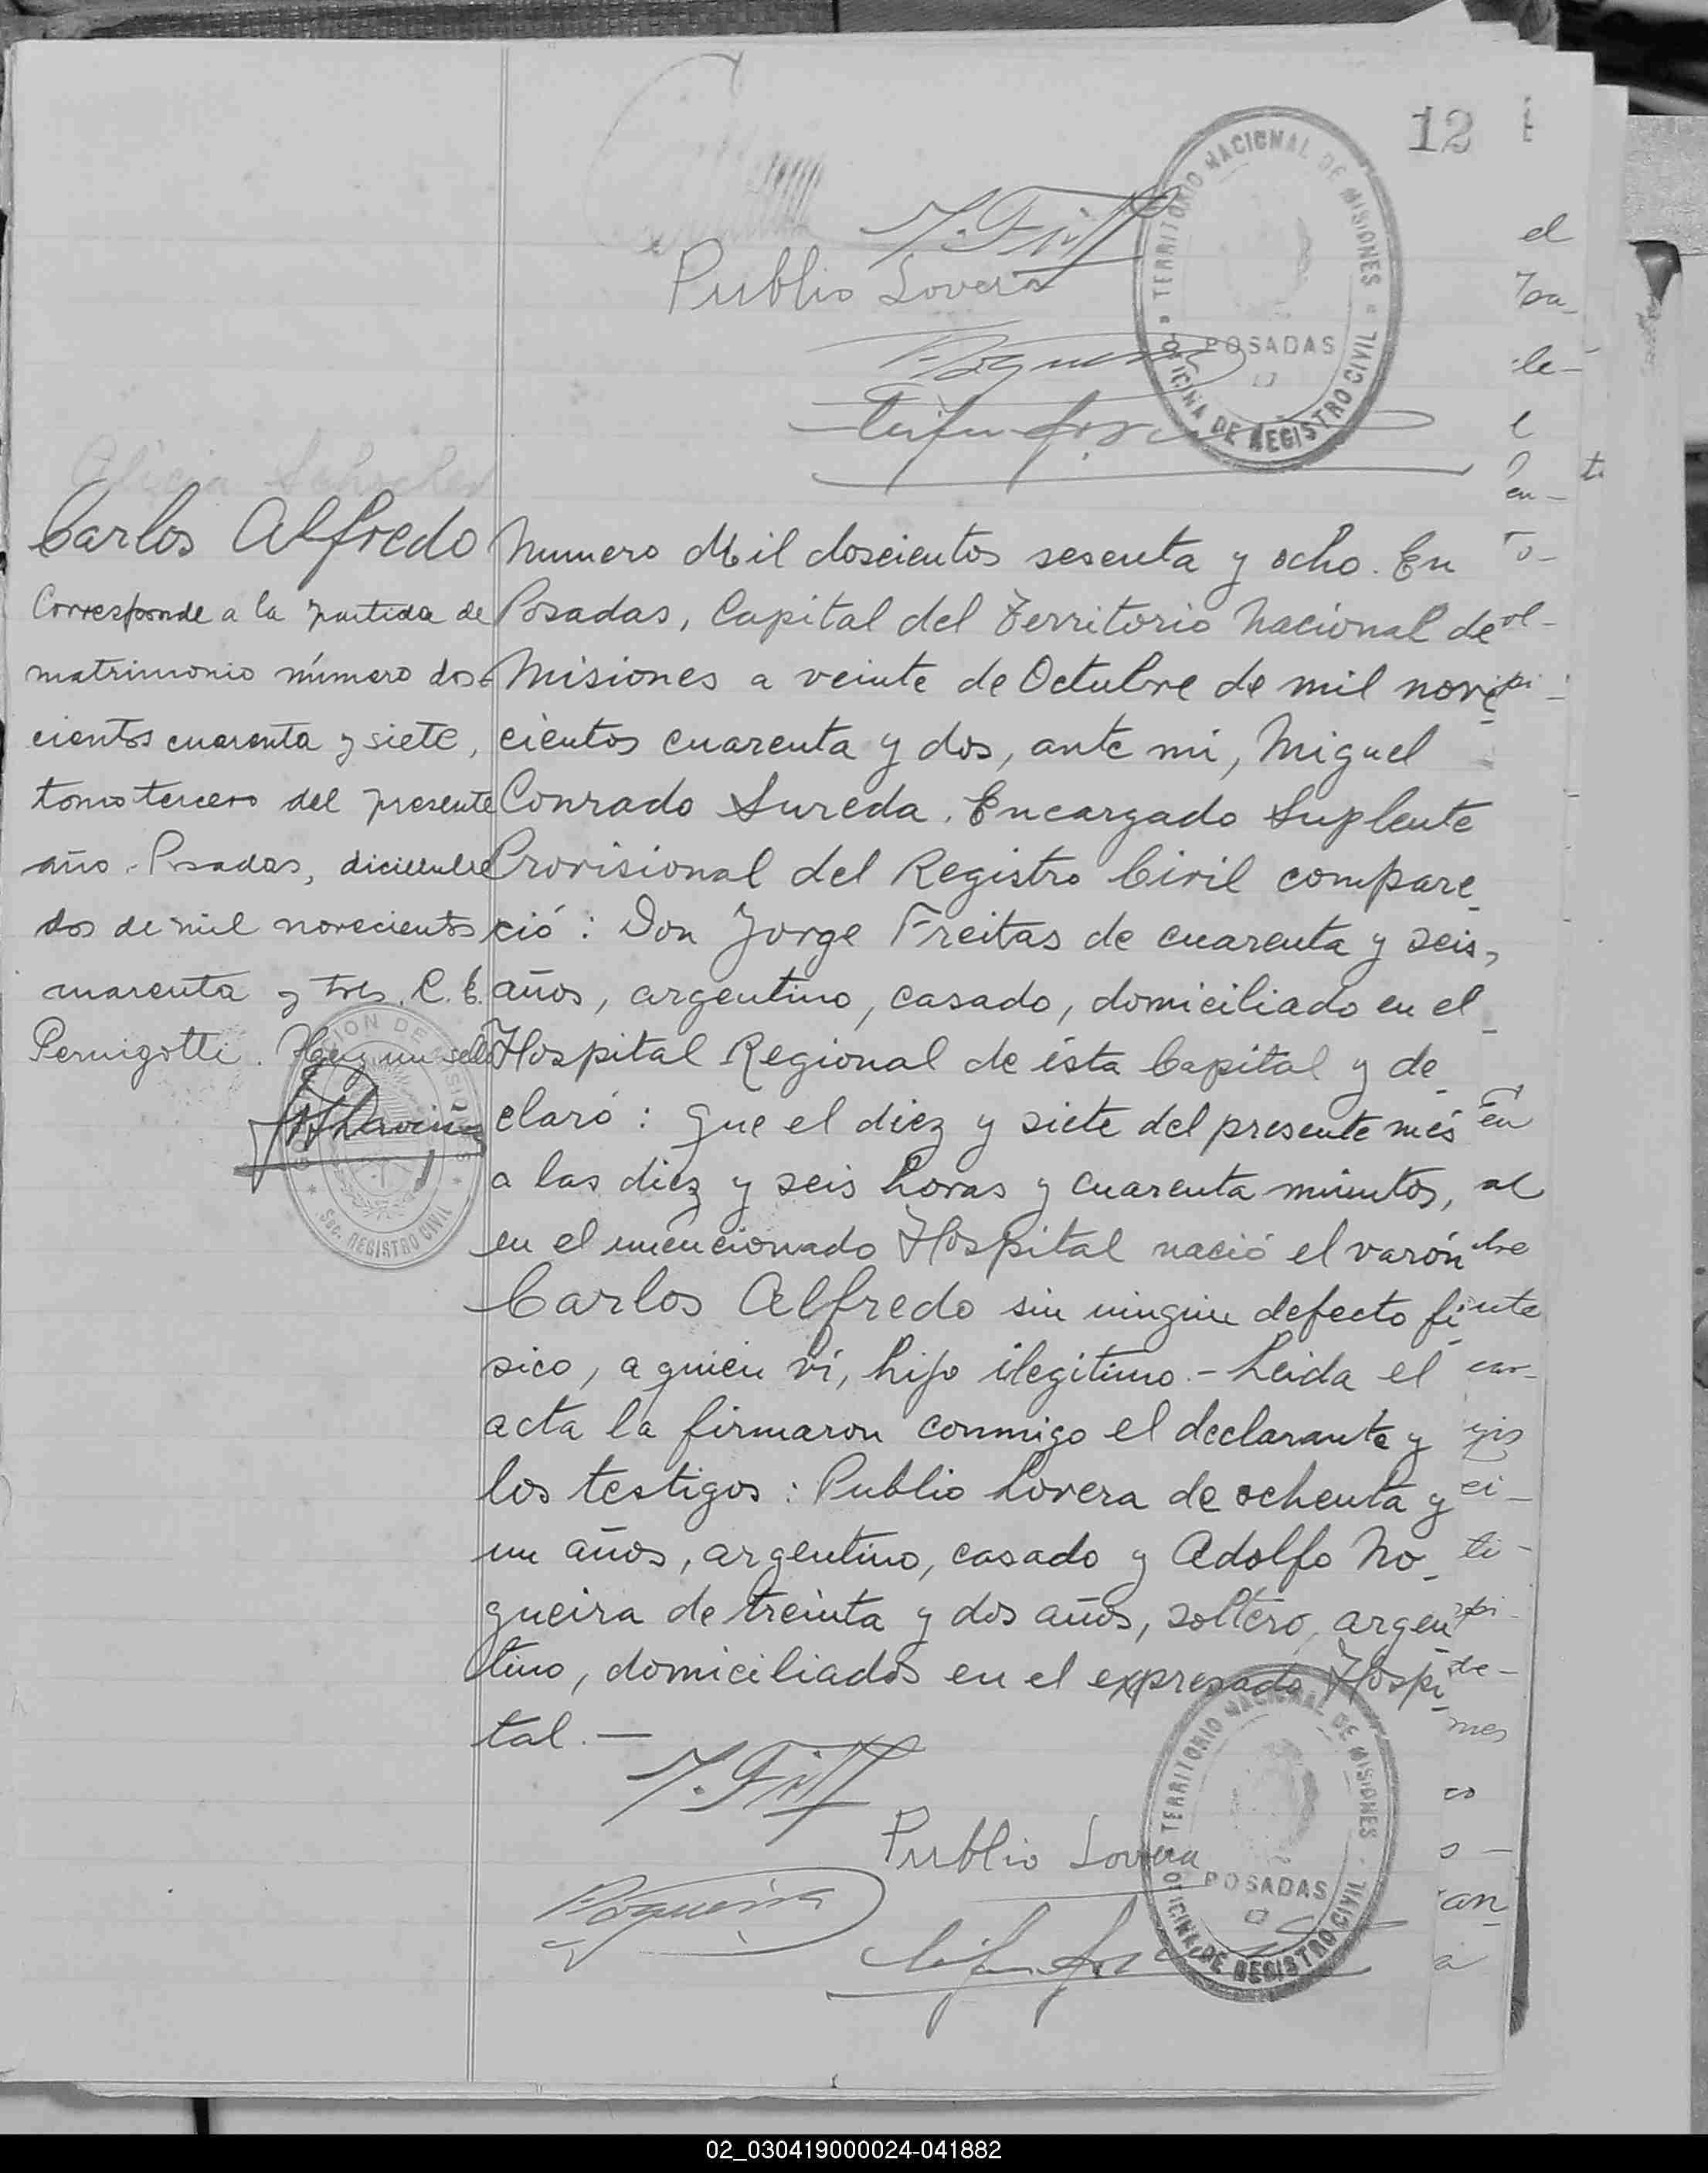 12
TERRITORIO NACIONAL DE MISIONES
POSADAS
OFICINA DE REGISTRO CIVIL
Publio Lovera
Alicia
Carlos Alfredo
Corresponde a la partida de
matrimonio número dos-
cientos cuarenta y siete,
tomo tercero del presente
año. Posadas, diciembre
dos de mil novecientos
cuarenta y tres. C. E.
Pernigotti. Hay un sello
Sec. REGISTRO CIVIL
Numero Mil doscientos sesenta y ocho. En
Posadas, Capital del Territorio Nacional de
Misiones a veinte de Octubre de mil nove_
cientos cuarenta y dos, ante mi, Miguel
Conrado Sureda. Encargado Suplente
Provisional del Registro Civil compare_
ció: Don Jorge Freitas de cuarenta y seis,
años, argentino, casado, domiciliado en el_
Hospital Regional de ésta Capital y de_
claró: que el diez y siete del presente més
a las diez y seis horas y cuarenta minutos,
en el mencionado Hospital nació el varón
Carlos Alfredo sin ningun defecto fi_
sico, a quien ví, hijo ilegitimo.- Leida el
acta la firmaron conmigo el declarante y
los testigos: Publio Lovera de ochenta y
un años, argentino, casado y Adolfo No_
gueira de treinta y dos años, soltero, argen_
tino, domiciliados en el expresado Hospi_
tal.—
Publio Lovera
Nogueira
TERRITORIO NACIONAL DE MISIONES
POSADAS
OFICINA DE REGISTRO CIVIL
02_030419000024-041882